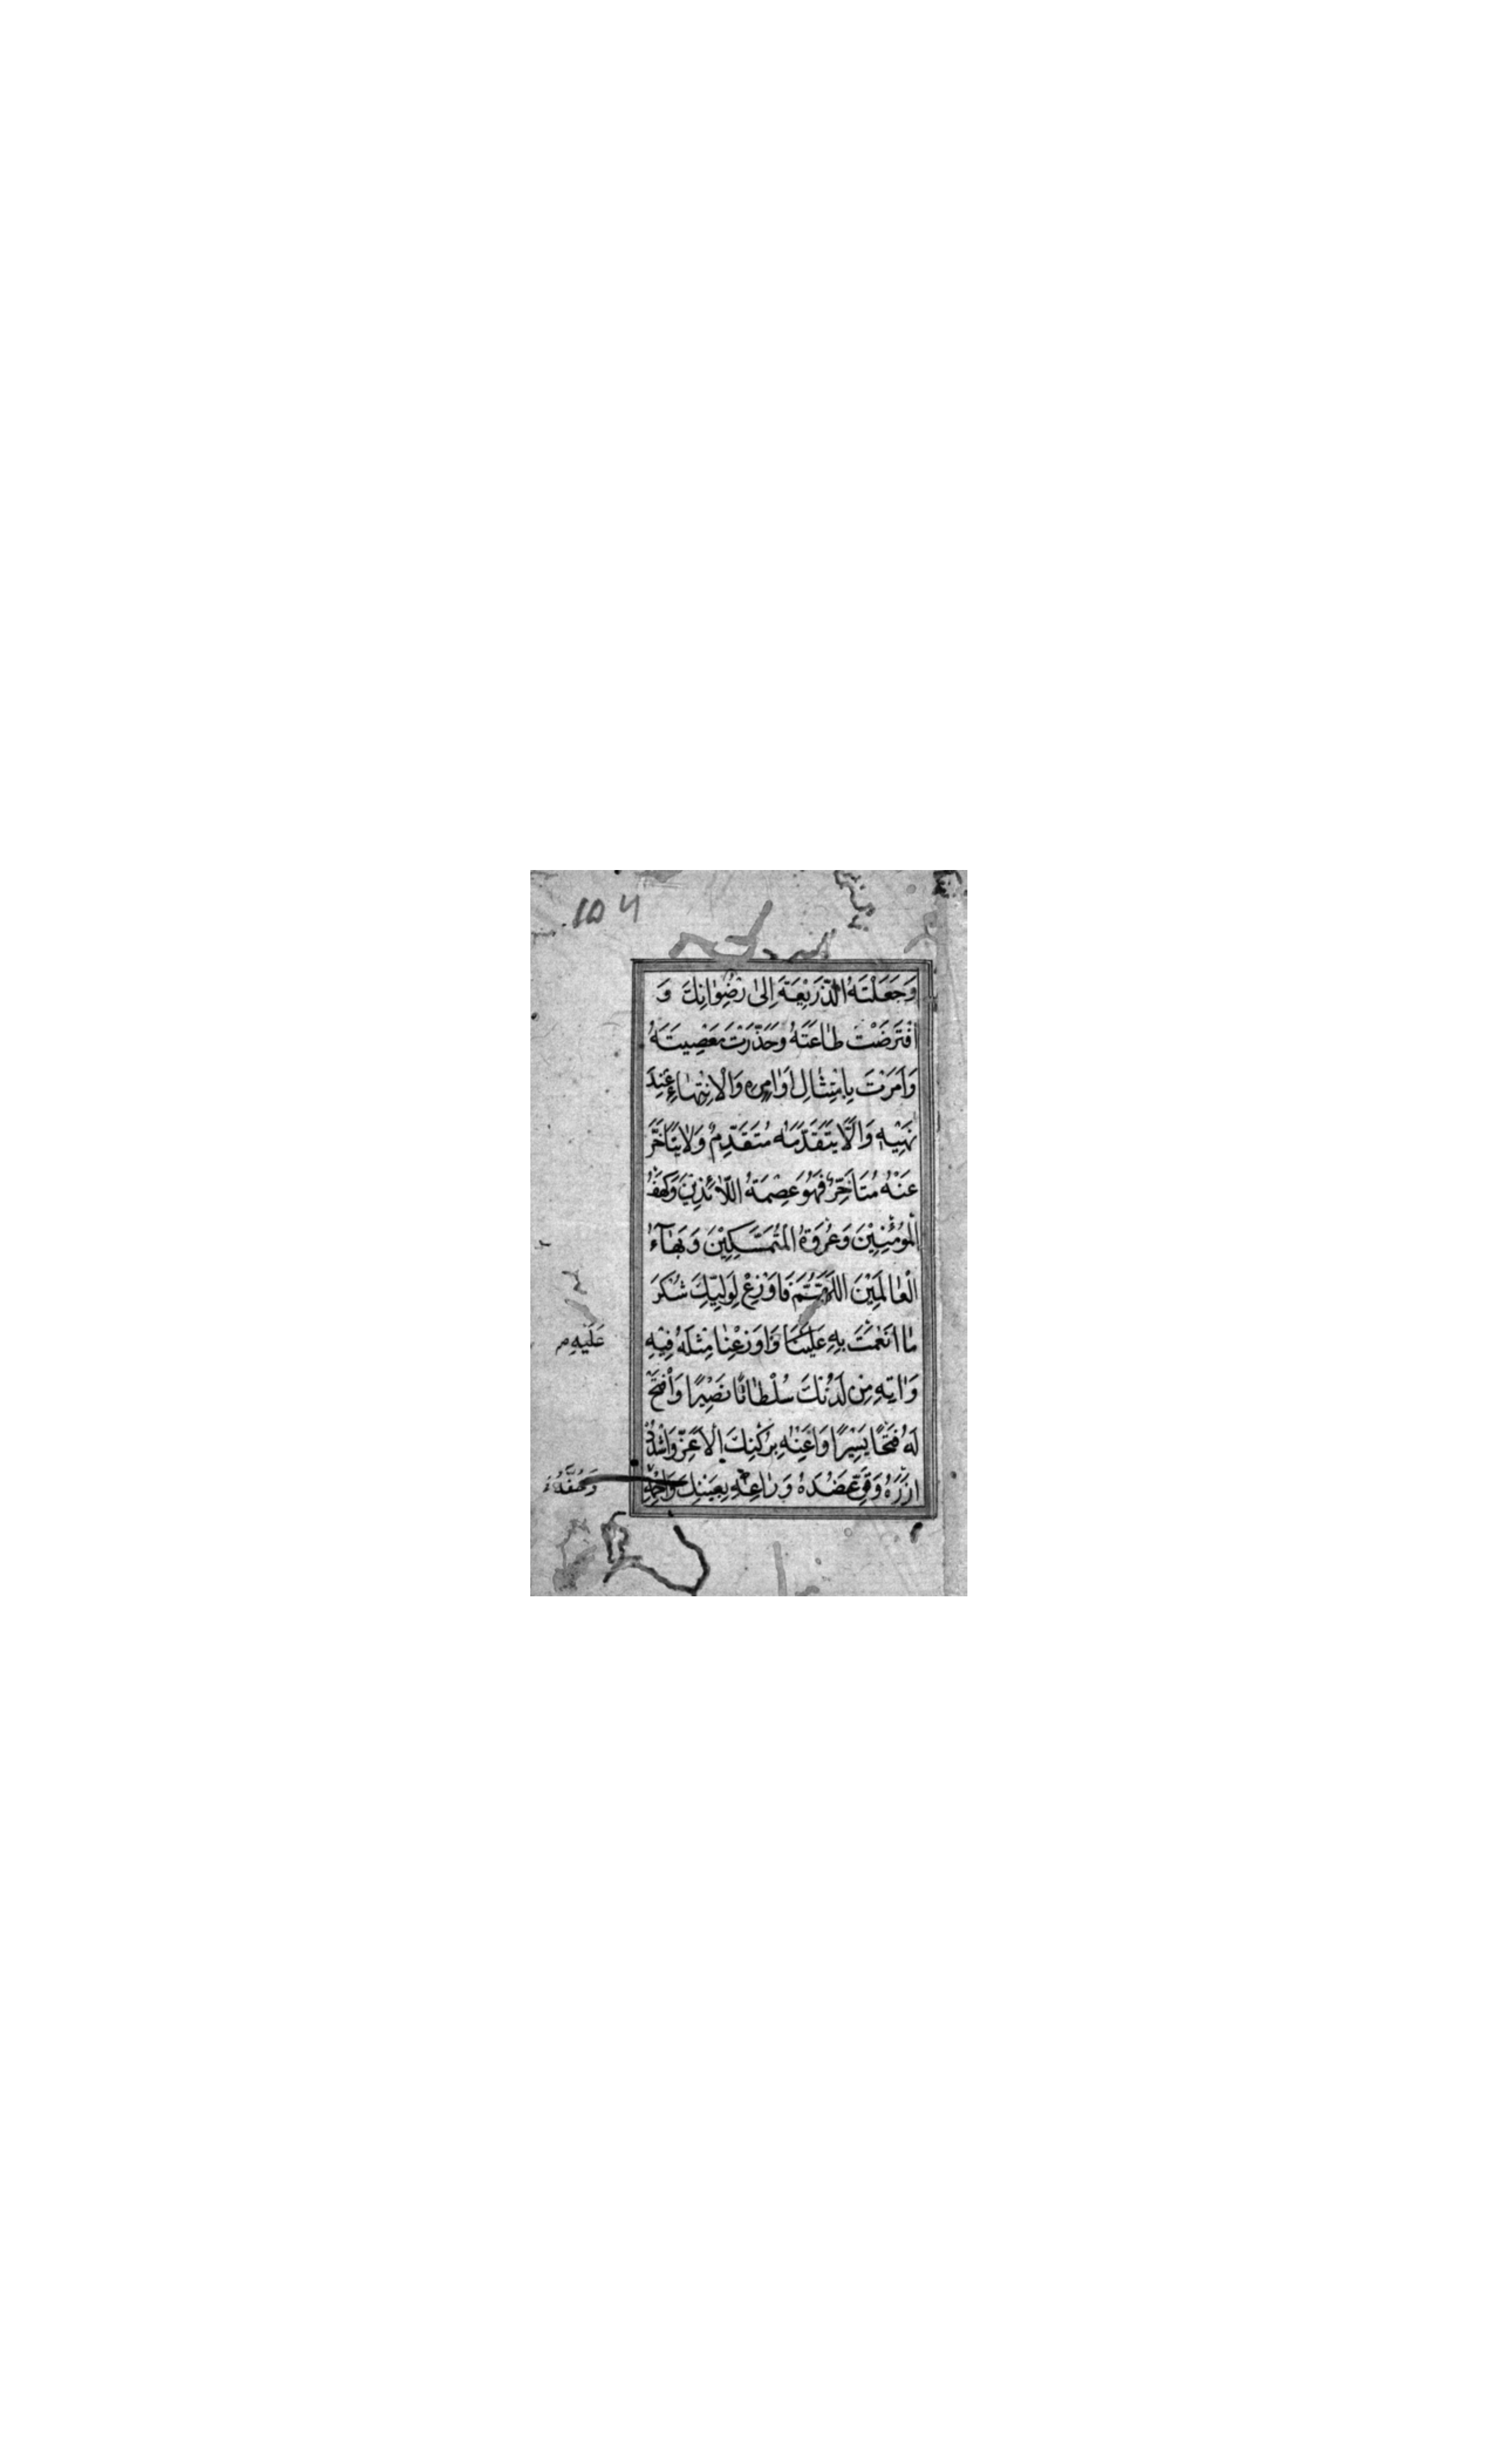 ۱۵۶
وَجَعَلْتَهُ الذَّرِيْعَةَ اِلىٰ رِضْوٰانِكَ وَ
افْتَرَضْتَ طٰاعَتَهُ وَحَذَّرْتَ مَعْصِيَتَهُ
وَاَمَرْتَ بِامْتِثٰالِ اَوٰامِرِهِ وَالْاِنْتِهٰاءِ عِنْدَ
نَهْيِهِ وَاَلّٰا يَتَقَدَّمَهُ مُتَقَدِّمٌ وَلٰا يَتَاَخَّرَ
عَنْهُ مُتَاَخِّرٌ فَهُوَ عِصْمَةُ اللّٰائِذِيْنَ وَكَهْفُ
الْمُؤْمِنِيْنَ وَعُرْوَةُ الْمُتَمَسِّكِيْنَ وَبَهٰآءُ
الْعٰالَمِيْنَ اللّٰهُمَّ فَاَوْزِعْ لِوَلِيِّكَ شُكْرَ
مٰا اَنْعَمْتَ بِهِ عَلَيْنَا وَاَوْزِعْنٰا مِثْلَهُ فِيْهِ
عَلَيْهِ م
وَاٰتِهِ مِنْ لَدُنْكَ سُلْطٰانًا نَصِيْرًا وَافْتَحْ
لَهُ فَتْحًا يَسِيْرًا وَاَعِنْهُ بِرُكْنِكَ الْاَعَزِّ وَاشْدُدْ
اَزْرَهُ وَقَوِّ عَضُدَهُ وَرٰاعِهِ بِعَيْنِكَ وَاحْمِهِ